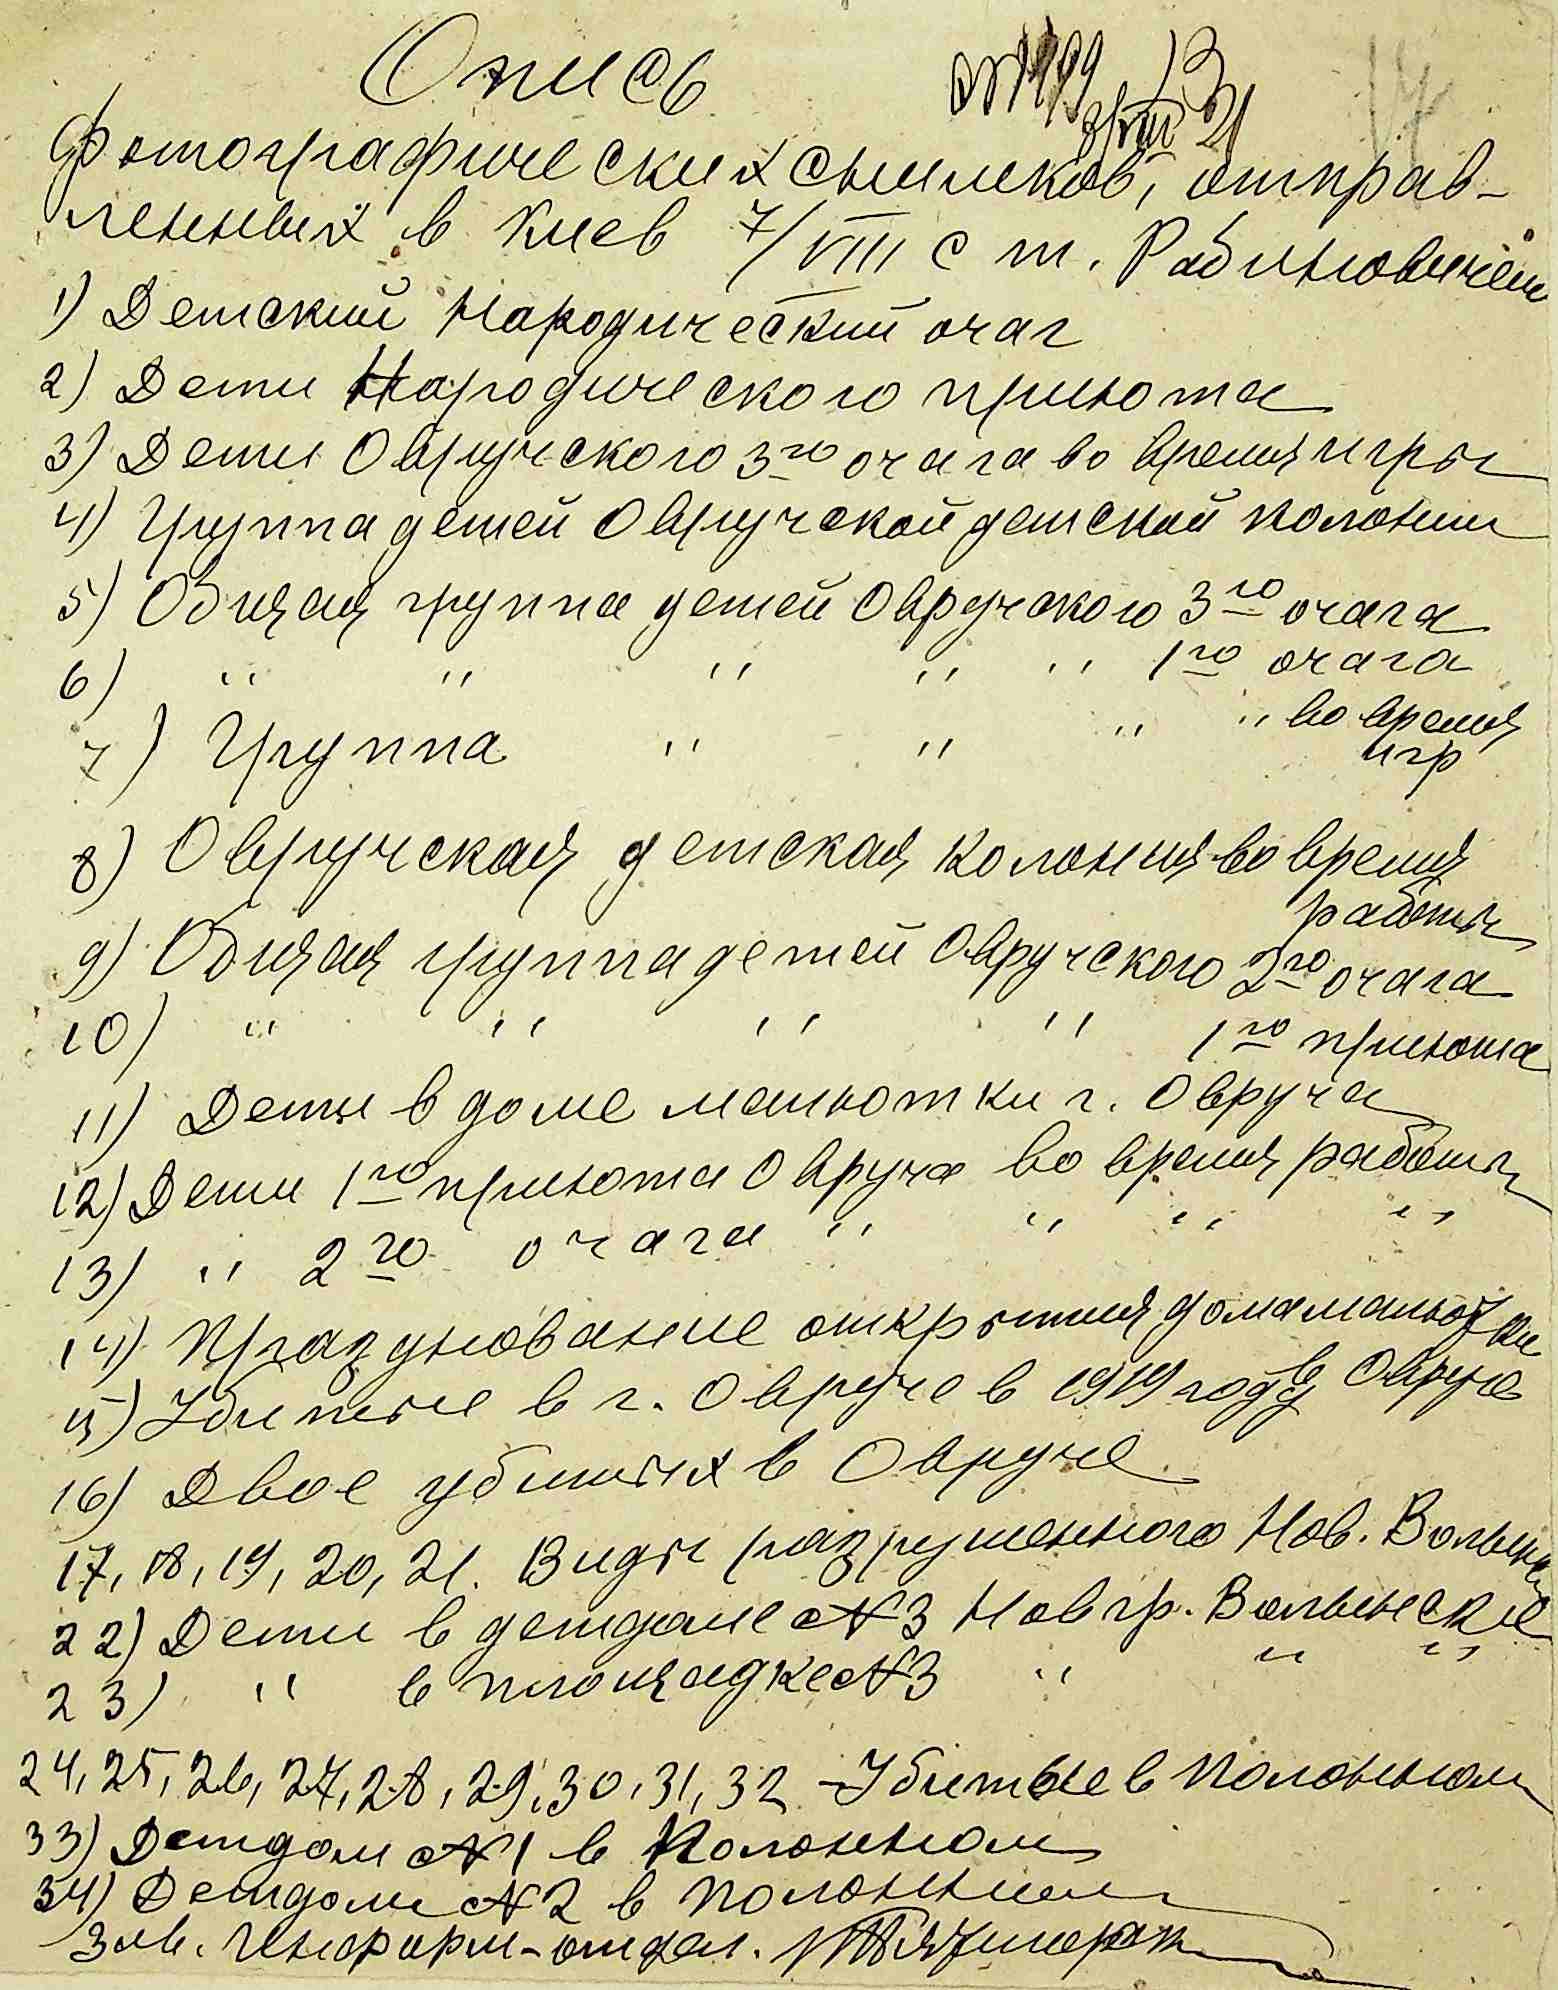 Опись
13
3/VIII 21
17
фотографических снимков, отправ-
ленных в Киев 7/VIII с т. Рабиновичем
1) Детский Народический очаг
2) Дети Народического приюта
3) Дети Овручского 3го очага во время игры
4) Группа детей Овручской детской колонии
5) Общая группа детей Овручского 3го очага
6) " " " " " 1го очага
7) Группа " " " " во время
игр
8) Овручская детская колония во время
работы
9) Общая группа детей Овручского 2го очага
10) " " " " 1го приюта
11) Дети в доме малютки г. Овруча
12) Дети 1го приюта Овруча во время работы
13) " 2го очага " " " "
14) Празднование открытия дома малютки
15) Убитые в г. Овруче в 1919 году в Овруче
16) Двое убитых в Овруче
17, 18, 19, 20, 21. Виды разрушенного Нов. Волынска
22) Дети в детдоме №3 Новгр. Волынске
23) " в площадке №3 " " "
24, 25, 26, 27, 28, 29, 30, 31, 32 - Убитые в Полонном
33) Детдом №1 в Полонном
34) Детдом №2 в Полонном
Зав. Информ-отдел.